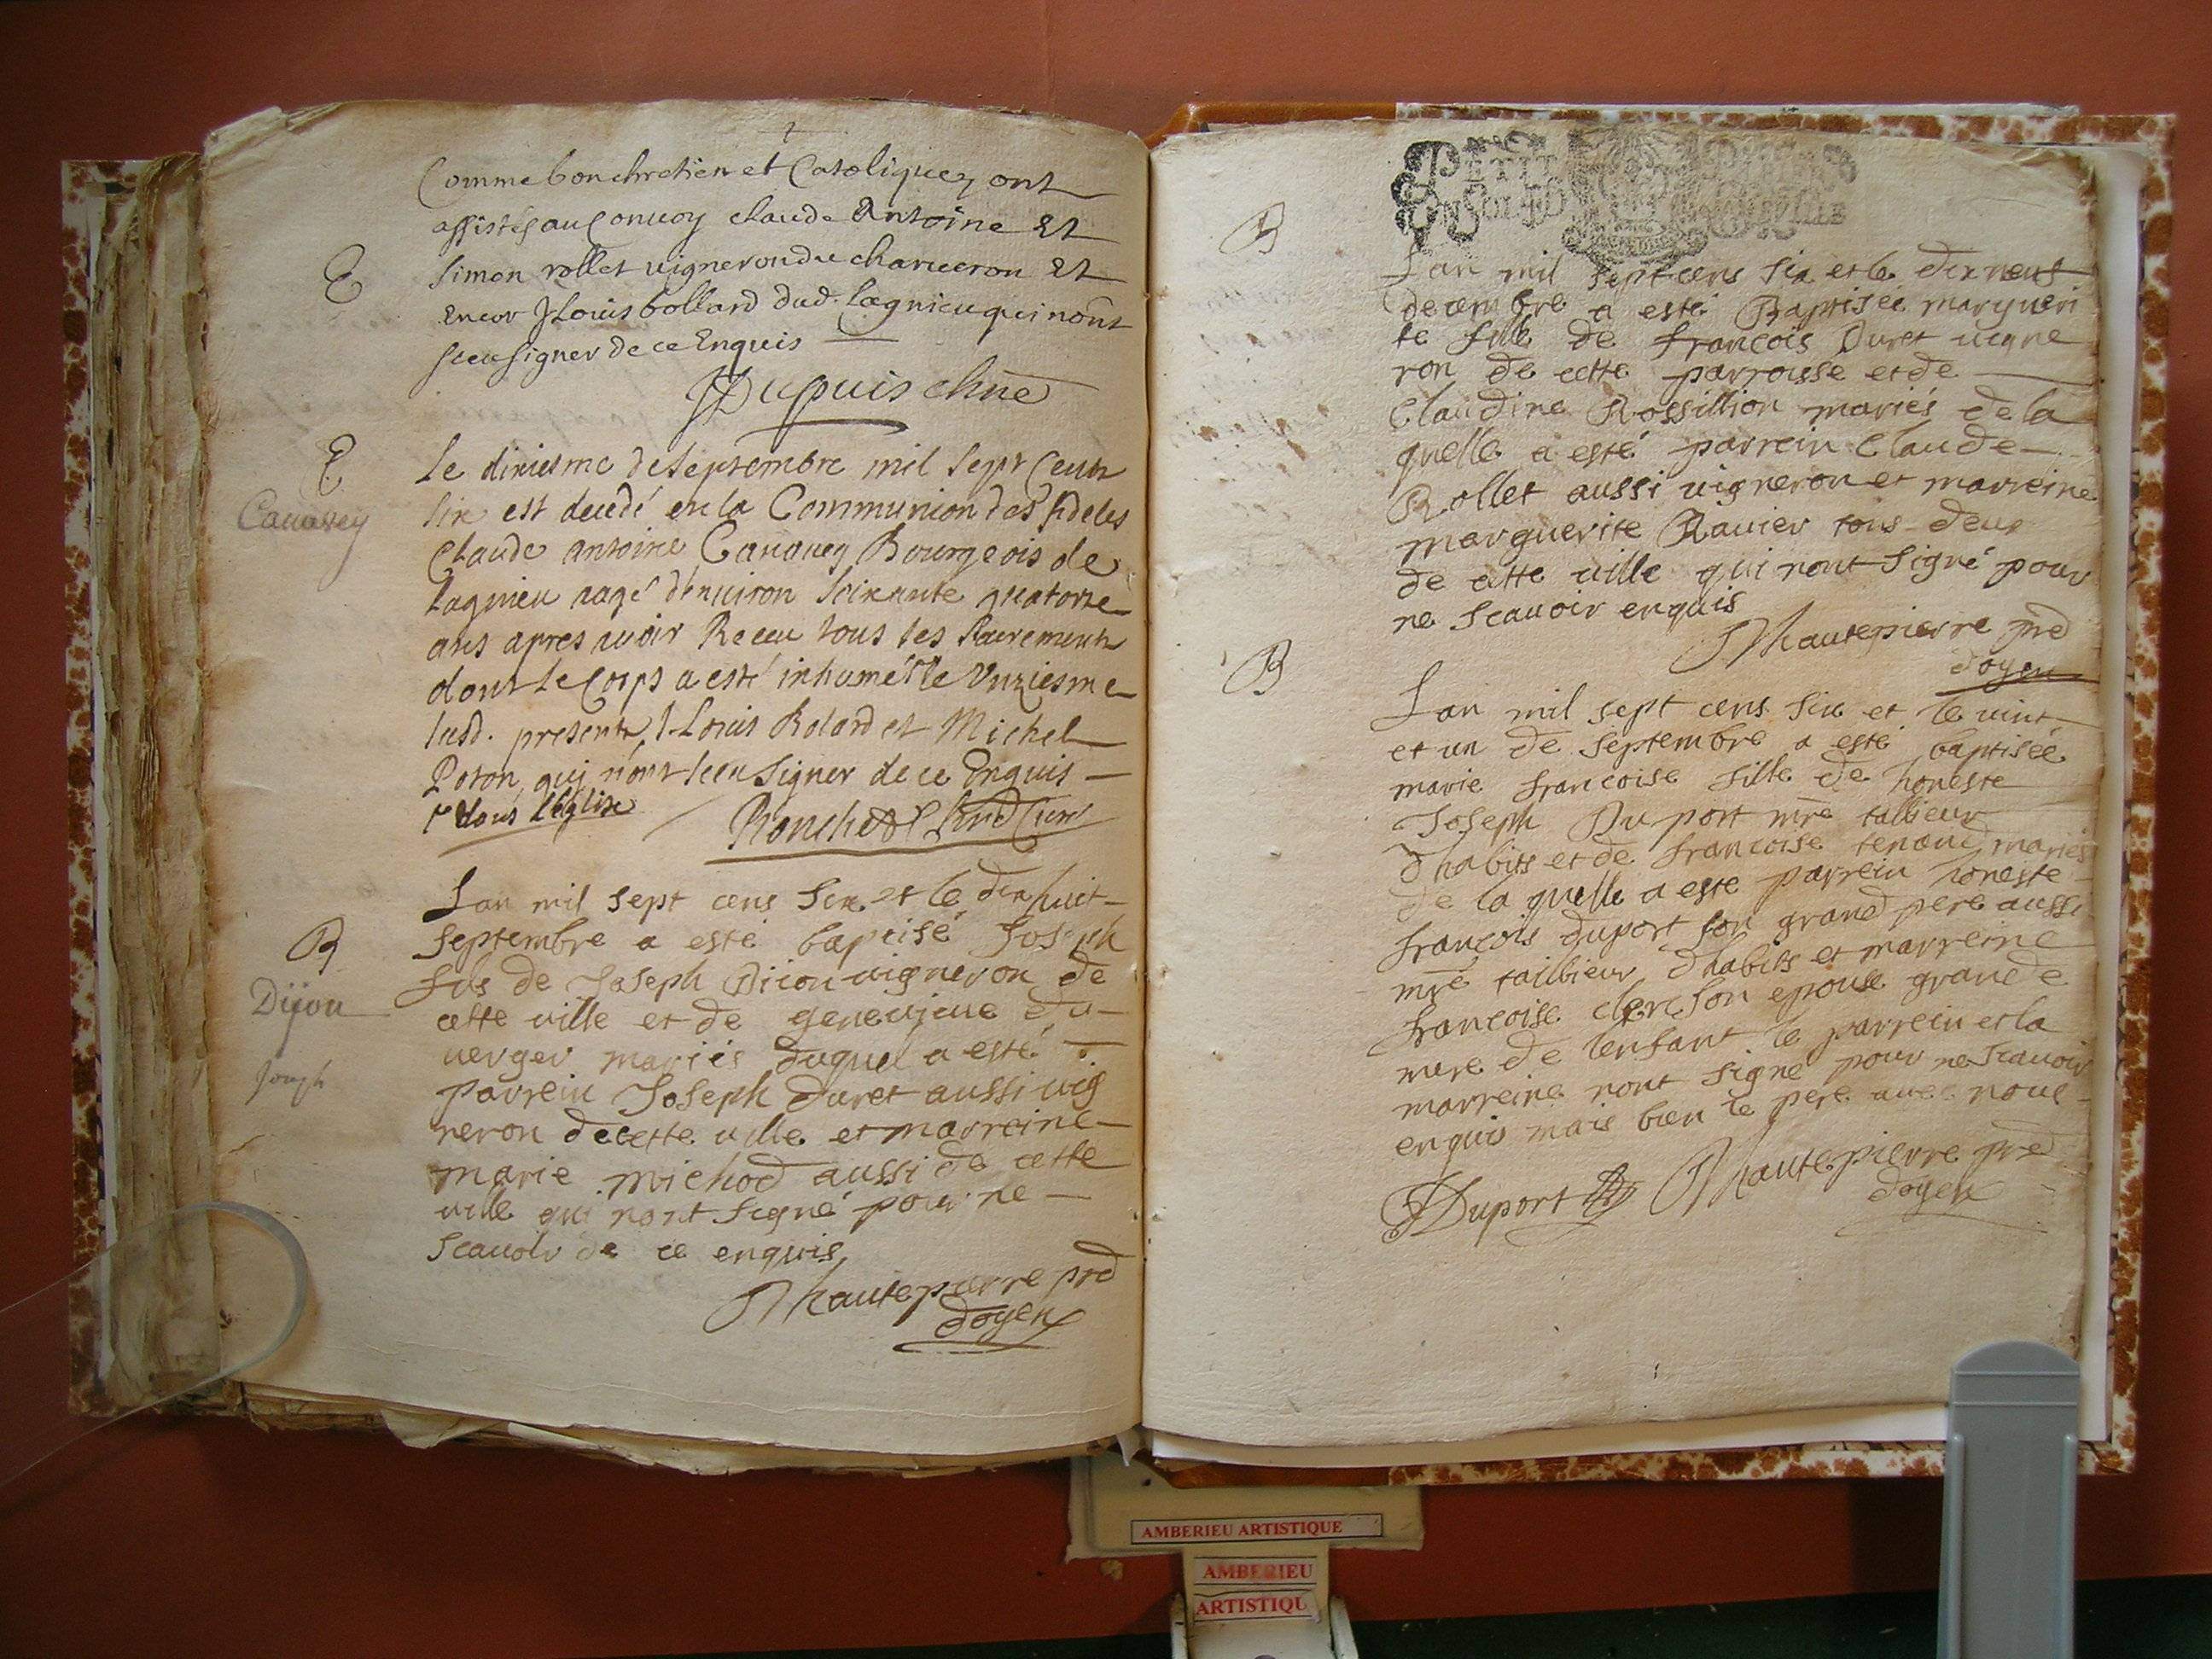 Comme bon chretien et Catolique, ont
assistés au Convoy claude Antoine Et
E
Simon rollet vigneron du charveron Et
Encor J Louis bollard dud. Lagnieu qui nont
sceu signer de ce Enquis
Dupuis chne
E
Le dixiesme de Septembre mil Sept Cent
Canavey
six est decedé en la Communion des fideles
Claude antoine Canavey Bourgeois de
Lagnieu aagé d'environ Soixante quatorze
ans apres avoir Receu tous les Sacrements
dont le Corps a esté inhumé le Unziesme
dusd. presents J-Louis Bolard et Michel
Poton qui n'ont sceu Signer de ce Enquis
dans L'église
Lan mil sept cens six et le dix huit
B
septembre a esté baptisé Joseph
fils de Joseph Dijou vigneron de
Dijou
cette ville et de genevieve du
verger mariés duquel a esté
Joseph
parrein Joseph duret aussi vig
neron de cette ville et marreine
marie michod aussi de cette
ville qui nont signé pour ne
scavoir de ce enquis
J hautepierre pred
doyen
PETIT PAPIER
B
Lan mil sept cens six et le dix neuf
decembre a esté Baptisée margueri
te fille de francois Duret vigne
ron de cette parroisse et de
Claudine Rossillion mariés de la
quelle a esté parrein Claude
Rollet aussi vigneron et marreine
marguerite Ravier tous deux
de cette ville qui nont signé pour
ne scavoir enquis
J hautepierre pred
doyen
B
Lan mil sept cens six et le vint
et un de septembre a esté baptisée
marie francoise fille de honeste
Joseph Duport mre tallieur
dhabits et de francoise tenand mariés
de la quelle a este parrein honeste
francois duport son grand pere aussi
mre taillieur dhabits et marreine
francoise clerc son epouse grande
mere de lenfant le parrein et la
marreine nont signé pour ne scavoir
enquis mais bien le pere avec nous
JDuport J hautepierre pred
doyen
AMBERIEU ARTISTIQUE
AMBERIEU
ARTISTIQU